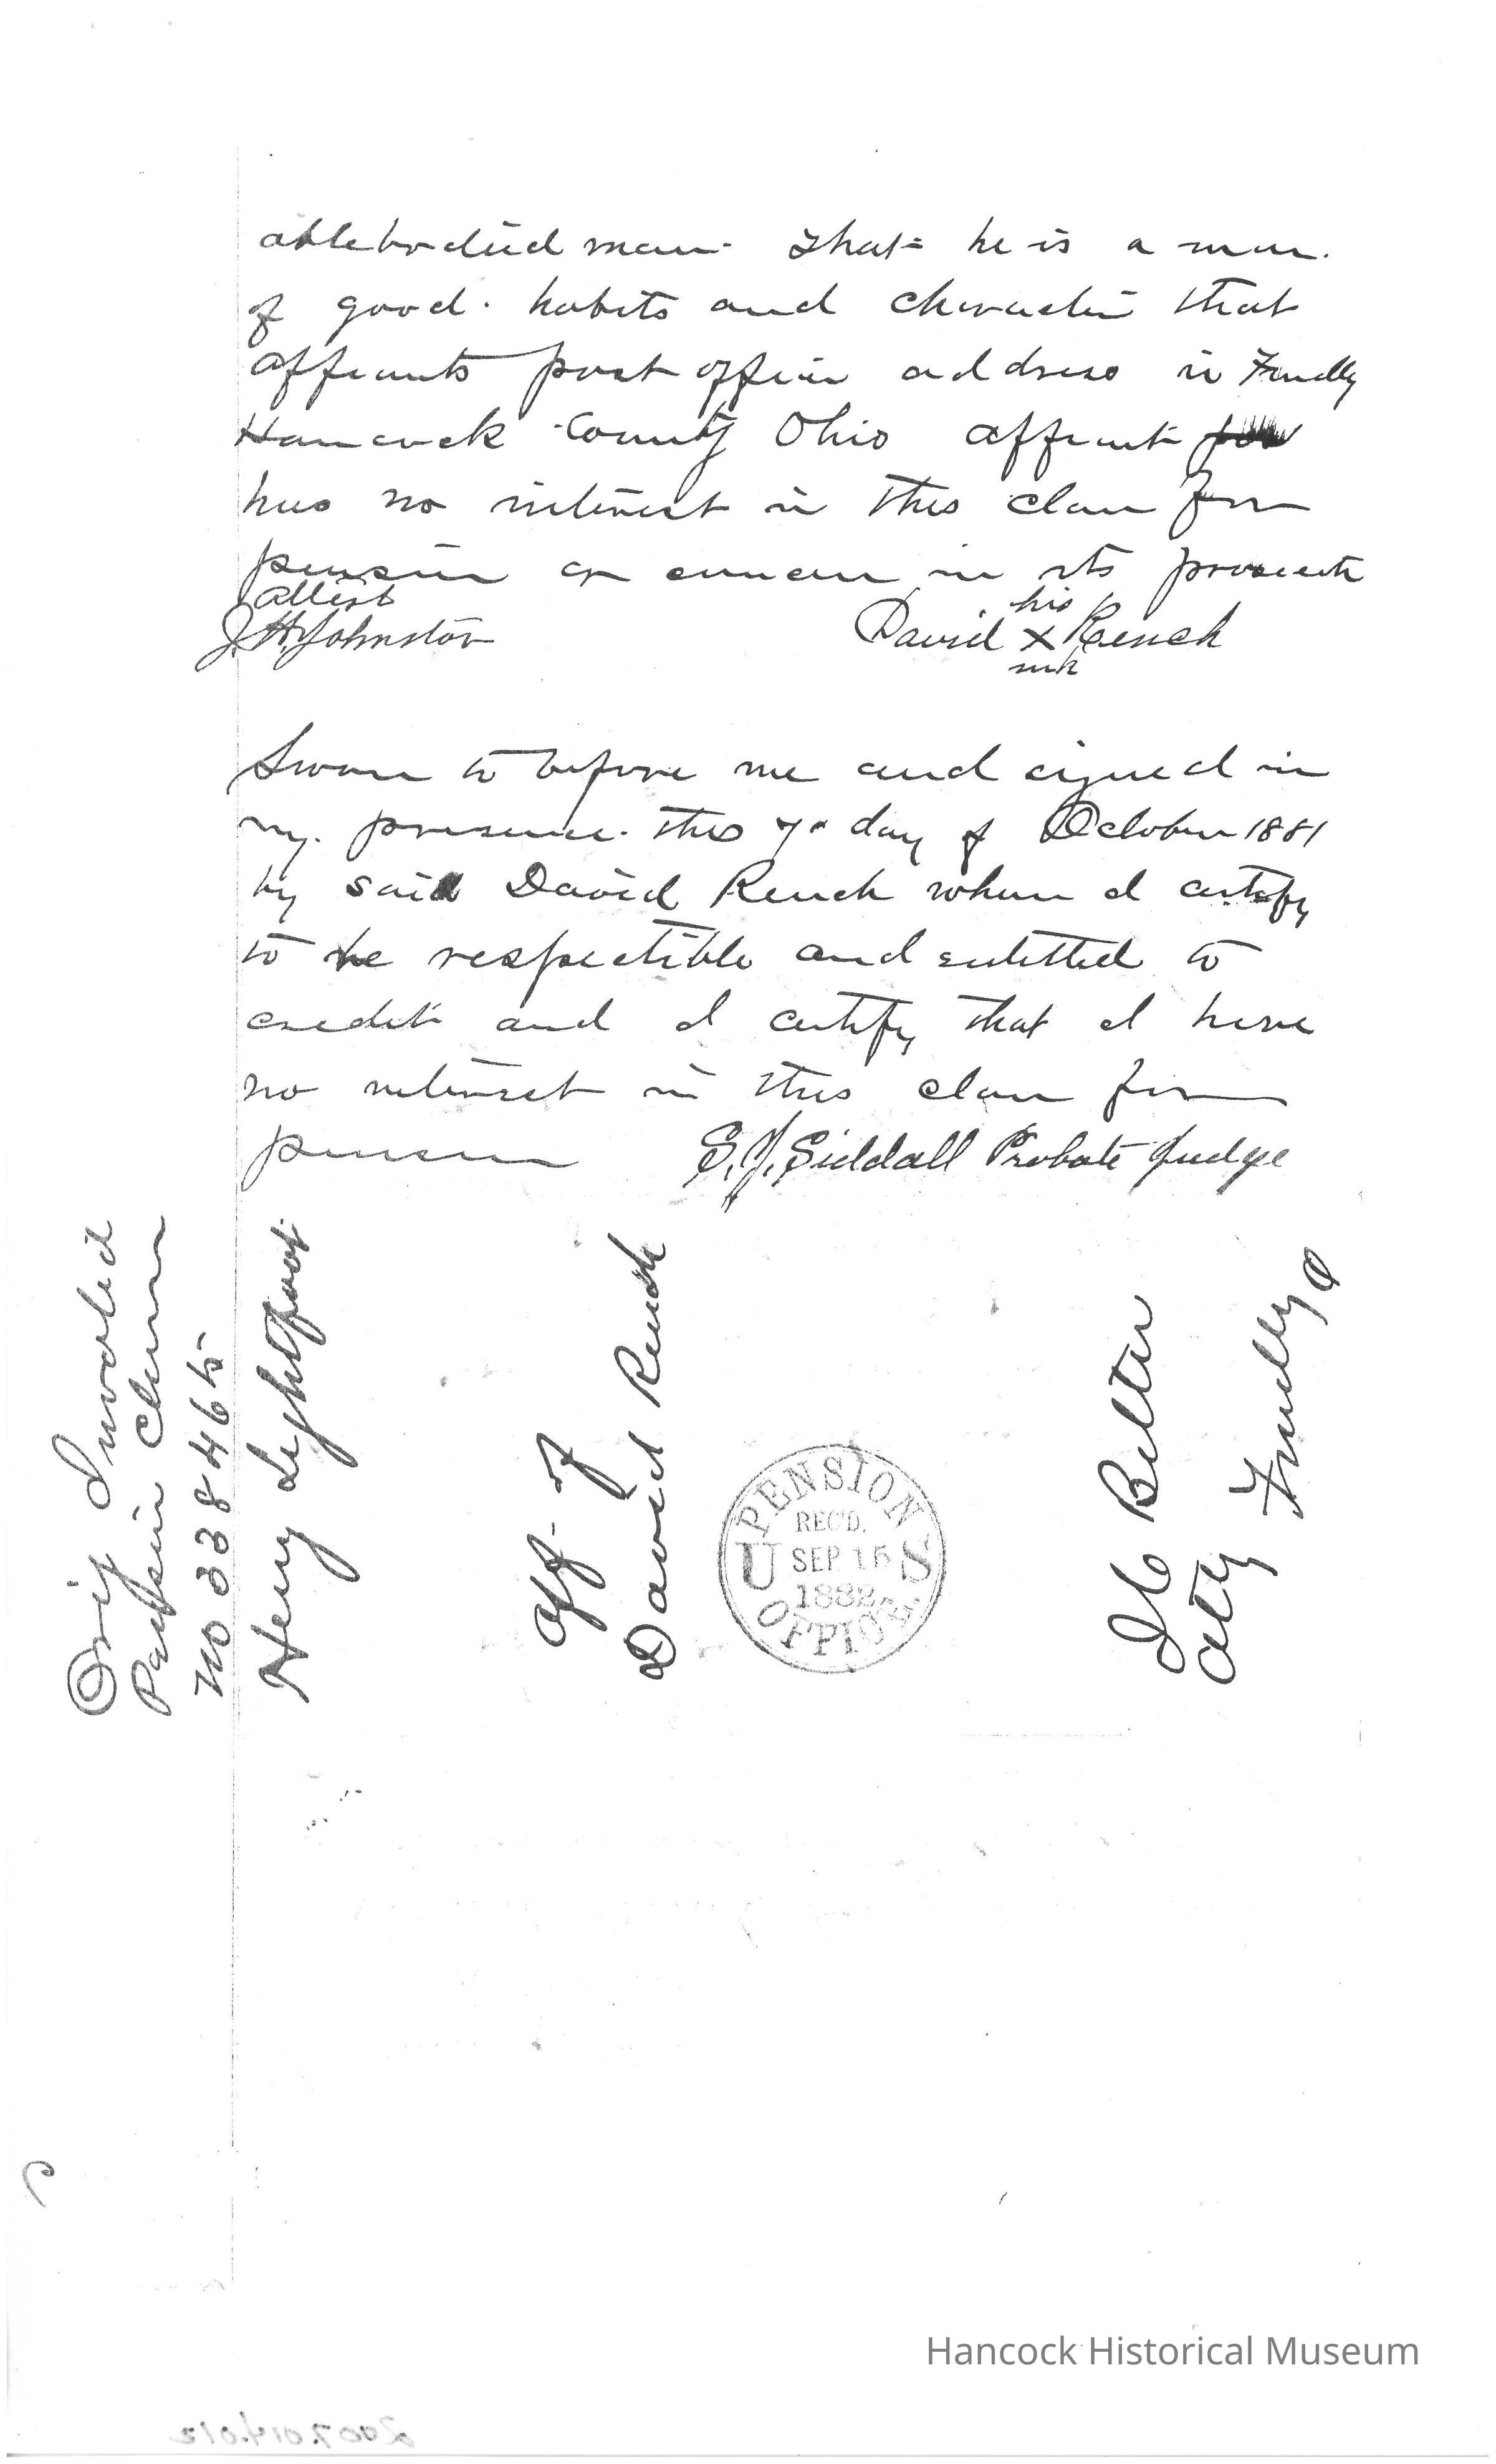 ablebodied man. That he is a man
of good habits and character that
affiants post office address is Findly
Hancock County Ohio affiant
has no interest in this claim for
pension or concern in its prosecute
attest
J. H. Johnston
his
David x Rench
mk
Sworn to before me and signed in
my presence this 7" day of October 1881
by said David Rench whom I certify
to be respectible and entitled to
credit and I certify that I have
no interest in this claim for
pension
S. J. Siddall Probate Judge
Orig Invalid
Pension Claim
No 338465
Henry Lightfoot
Aff. of
David Rench
U.S. PENSION OFFICE
REC'D.
SEP 15
1882
Belter
Atty Findly O
Hancock Historical Museum
2007.014.012